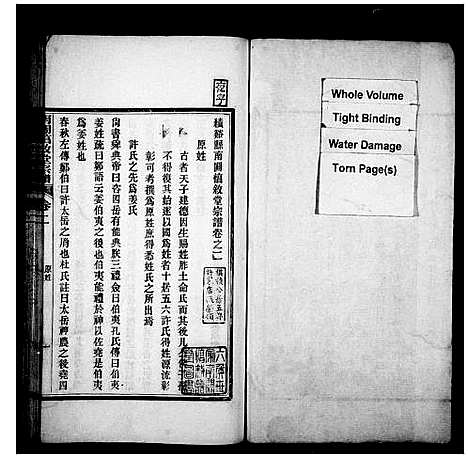 績谿縣南關惇敘堂宗譜卷之一
原姓
古者天子建德因生賜姓胙土命氏而其後凡
不得復其始遂以國爲姓者十居五六許氏得姓源流彰
彰可考撰爲原姓庶得悉姓氏之所出焉
許氏之先爲姜氏
尙書舜典帝曰咨四岳有能典朕三禮僉曰伯夷孔氏傳曰伯夷
姜姓疏曰鄭語云姜伯夷之後也伯夷能禮於神以佐堯是伯夷
爲姜姓也
春秋左傳鄭伯曰許太岳之胤也杜氏註曰太岳神農之後堯四
原姓
Whole Volume
Tight Binding
Water Damage
Torn Page(s)